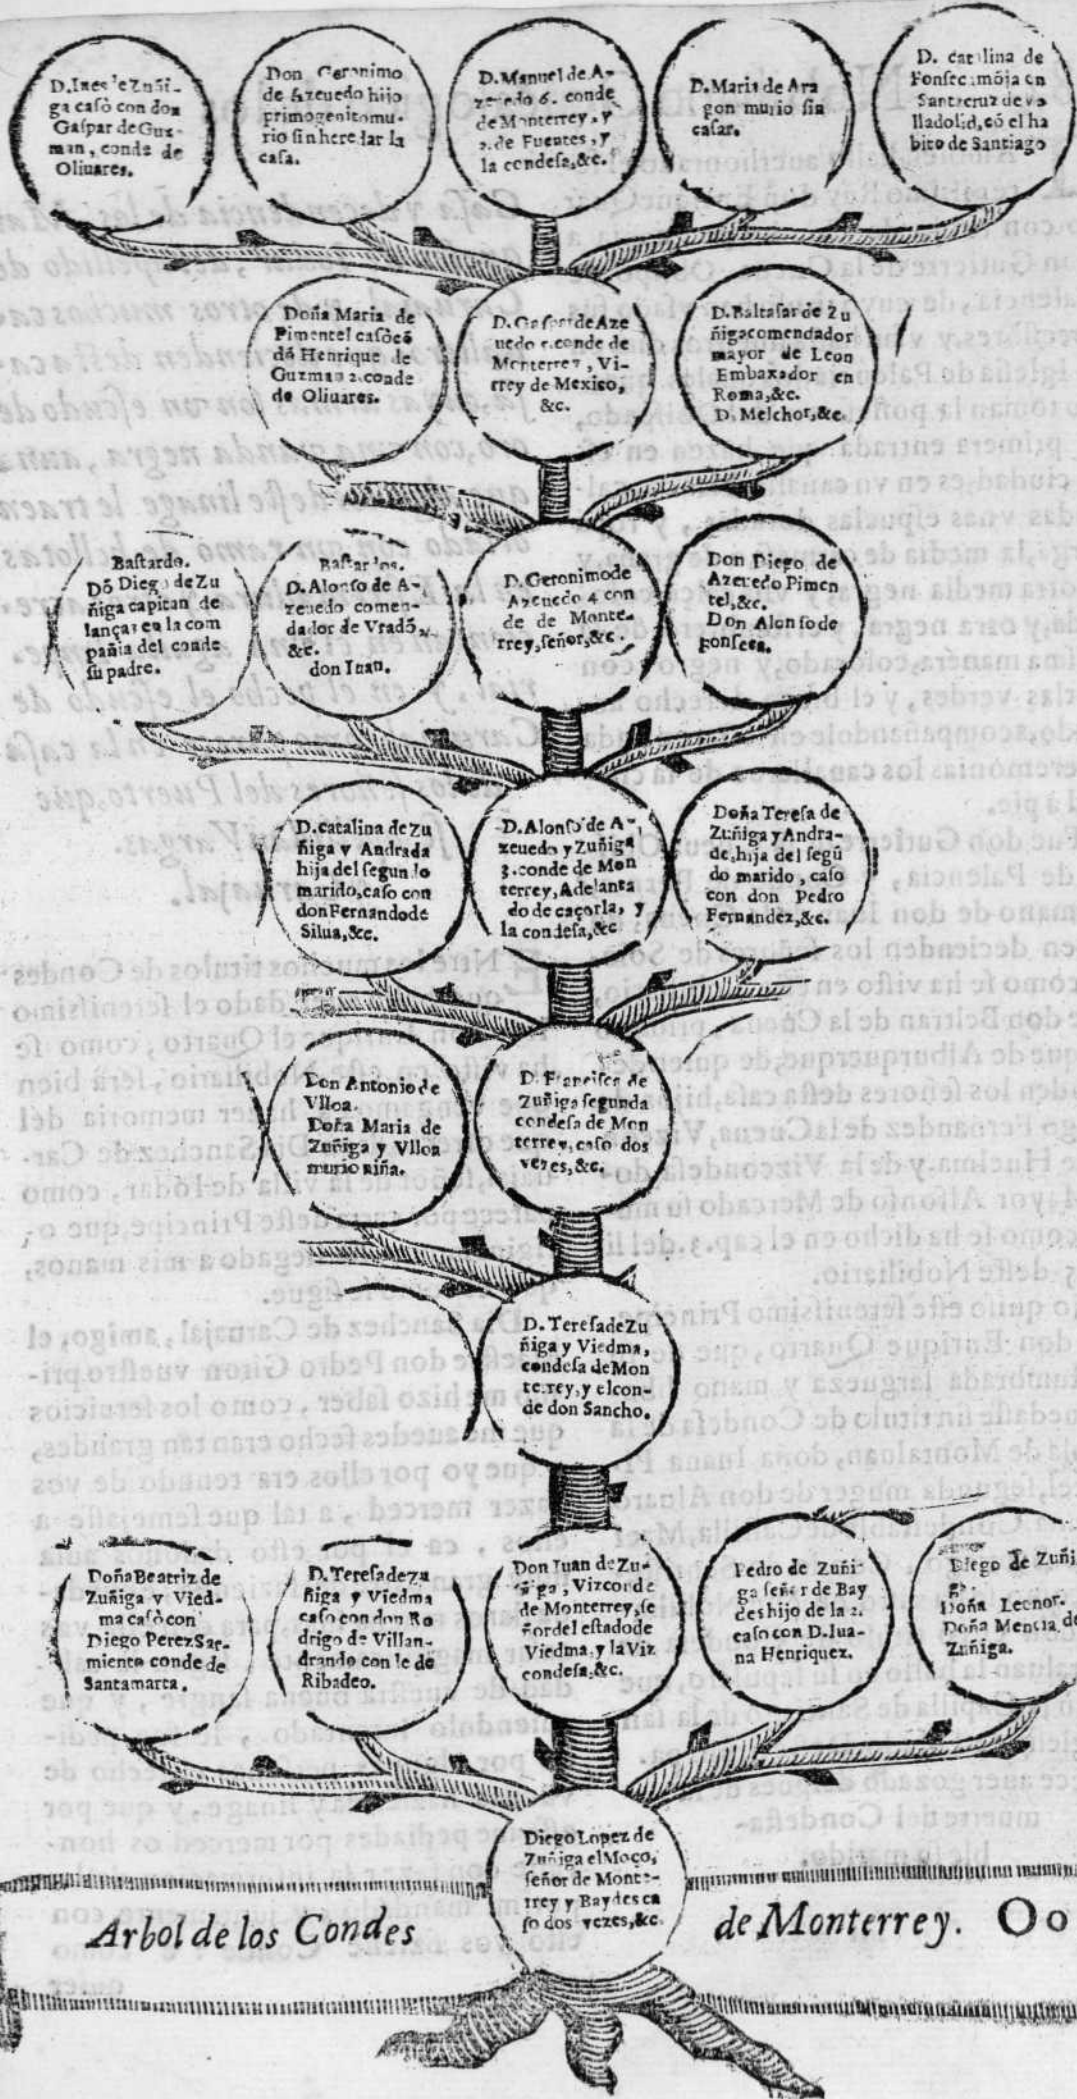 D. Ines de Zuñi-
ga casò con don
Gaspar de Guz-
man, conde de
Oliuares.
Don Geronimo
de Azeuedo hijo
primogenito mu-
rio sin heredar la
casa.
D. Manuel de A-
zeuedo 6. conde
de Monterrey, y
2. de Fuentes, y
la condesa, &c.
D. Maria de Ara
gon murio sin
casar.
D. catalina de
Fonsec. mõja en
Santacruz de va
lladolid, cõ el ha
bito de Santiago
Doña Maria de
Pimentel casòcõ
dõ Henrique de
Guzman 2. conde
de Oliuares.
D. Gaspar de Aze
uedo 5. conde de
Monterrey, Vi-
rrey de Mexico,
&c.
D. Baltasar de Zu
ñiga comendador
mayor de Leon
Embaxador en
Roma, &c.
D. Melchor, &c.
Bastardo.
Dõ Diego de Zu
ñiga capitan de
lanças en la com
pañia del conde
su padre.
Bastardos.
D. Alonso de A-
zeuedo comen-
dador de Vradõ,
&c.
don Iuan.
D. Geronimo de
Azeuedo 4 con
de de Monte-
rrey, señor, &c.
Don Diego de
Azeuedo Pimen
tel, &c.
Don Alonso de
Fonseca.
D. catalina de Zu
ñiga y Andrada
hija del segundo
marido, caso con
don Fernando de
Silua, &c.
D. Alonso de A-
zeuedo y Zuñiga
3. conde de Mon
terrey, Adelanta
do de caçorla, y
la condesa, &c
Doña Teresa de
Zuñiga y Andra-
de, hija del segũ
do marido, caso
con don Pedro
Fernandez, &c.
Don Antonio de
Vlloa.
Doña Maria de
Zuñiga y Vlloa
murio niña.
D. Francisca de
Zuñiga segunda
condesa de Mon
terrey, caso dos
vezes, &c.
D. Teresa de Zu
ñiga y Viedma,
condesa de Mon
terrey, y el con-
de don Sancho.
Doña Beatriz de
Zuñiga y Vied-
ma casò con
Diego Perez Sar-
miento conde de
Santamarta.
D. Teresa de zu
ñiga y Viedma
caso con don Ro
drigo de Villan-
drando conde de
Ribadeo.
Don Iuan de Zu-
ñiga, Vizconde
de Monterrey, se
ñor del estado de
Viedma, y la Viz
condesa, &c.
Pedro de Zuñi-
ga señor de Bay
des hijo de la 2.
caso con D. Iua-
na Henriquez.
Diego de Zuñi
ga.
Doña Leonor.
Doña Mencia de
Zuñiga.
Diego Lopez de
Zuñiga el Moço,
señor de Monte-
rrey y Baydes ca
so dos vezes, &c.
Arbol de los Condes de Monterrey. Oo